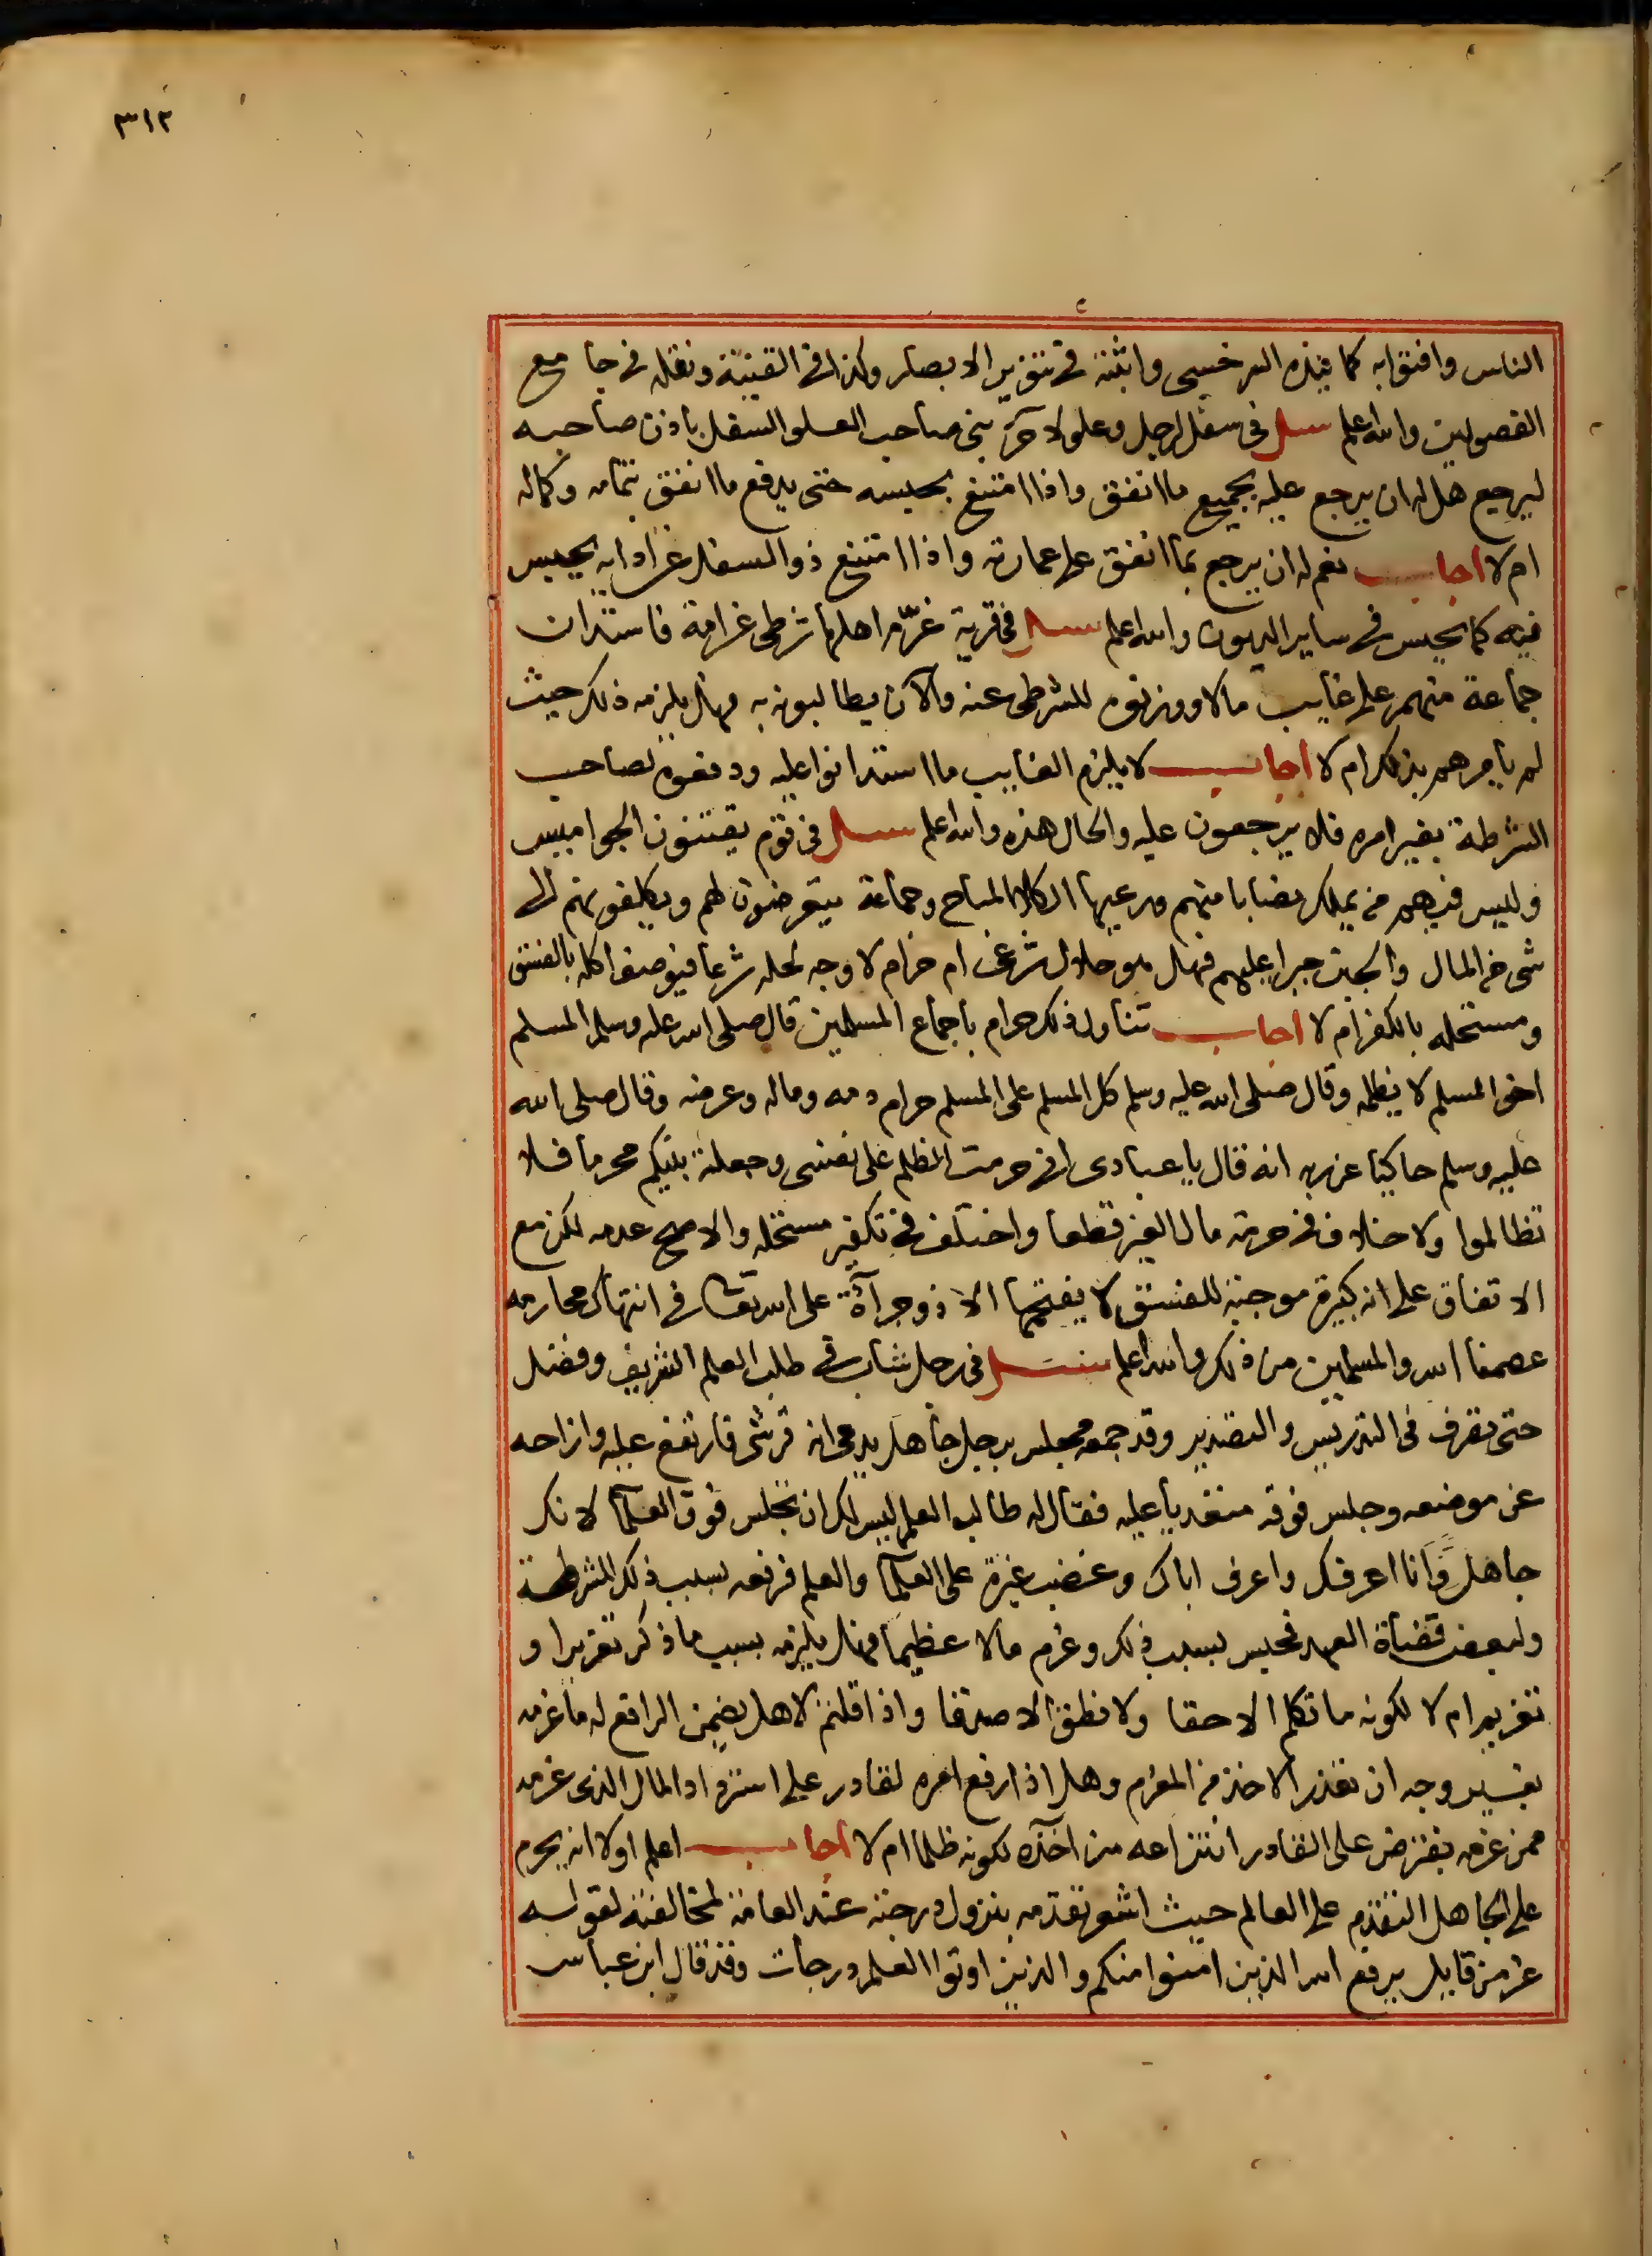 ٣١٢
الناس وافتوا به كما قيده السرخسي واثبته في تنوير الابصار وكذا في القنية ونقله في جامع
الفصولين والله اعلم سئل في سفل لرجل وعلو لاخر بنى صاحب العلو السفل باذن صاحبه
ليرجع هل له ان يرجع عليه بجميع ما انفق واذا امتنع بحبسه حتى يدفع ما انفق بتمامه وكماله
ام لا اجاب نعم له ان يرجع بما انفق على عمارته واذا امتنع ذو السفل عن ادايه يحبس
فيه كما يحبس في ساير الديون والله اعلم سئل في قرية غرّم اهلها شرطى غرامة فاستدان
جماعة منهم على غايب مالا ووزنوه للشرطى عنه والآن يطالبونه به فهل يلزمه ذلك حيث
لم يامرهم بذلك ام لا اجاب لا يلزم الغايب ما استدانوا عليه ودفعوه لصاحب
الشرطة بغير امره فلا يرجعون عليه والحال هذه والله اعلم سئل في قوم يقتنون الجواميس
وليس فيهم من يملك نصابا منهم ومرعيها الكلأ المباح وجماعة يتعرضون لهم ويكلفونهم الى
شى من المال والجبن جبرا عليهم فهل هو حلال شرعى ام حرام لا وجه لحله شرعا فيوصف اكله بالفسق
ومستحله بالكفر ام لا اجاب تناول ذلك حرام باجماع المسلمين قال صلى الله عليه وسلم المسلم
اخو المسلم لا يظلمه وقال صلى الله عليه وسلم كل المسلم على المسلم حرام دمه وماله وعرضه وقال صلى الله
عليه وسلم حاكيا عن ربه انه قال يا عبادى انى حرمت الظلم على نفسى وجعلته بينكم محرما فلا
تظالموا ولا خلاف في حرمة مال الغير قطعا واختلف في تكفير مستحله والاصح عدمه لكن مع
الاتفاق على انه كبيرة موجبة للفسق لا يقتحمها الا ذو جرآة على الله تعالى في انتهاك محارمه
عصمنا الله والمسلمين من ذلك والله اعلم سئل في رجل شاب في طلب العلم الشريف وفضل
حتى تعرف في التدريس والتصدير وقد جمعه مجلس برجل جاهل يدعى انه قرشى فارتفع عليه وازاحه
عن موضعه وجلس فوقه متعديا عليه فقال له طالب العلم ليس لك ان تجلس فوق العلما لانك
جاهل وانا اعرفك واعرف اباك وغضب غيرة على العلما والعلم فرفعه بسبب ذلك للشرطة
ولبعض قضاة العهد فحبس بسبب ذلك وغرم مالا عظيما فهل يلزمه بسبب ما ذكر تعزيرا و
تعزير ام لا لكونه ما تكلم الا حقا ولا نطق الا صدقا واذا قلتم لا هل يضمن الرافع له ما غرمه
بغير وجه ان تعذر الاخذ من المغرم وهل اذا رفع امره لقادر على استرداد المال الذى غرمه
ممن غرمه يفترض على القادر انتزاعه من اخذه لكونه ظلما ام لا اجاب اعلم اولا انه يحرم
على الجاهل التقدم على العالم حيث اشعر تقدمه بنزول درجته عند العامة لمخالفته لقوله
عز من قايل يرفع الله الذين امنوا منكم والذين اوتوا العلم درجات وقد قال ابن عباس